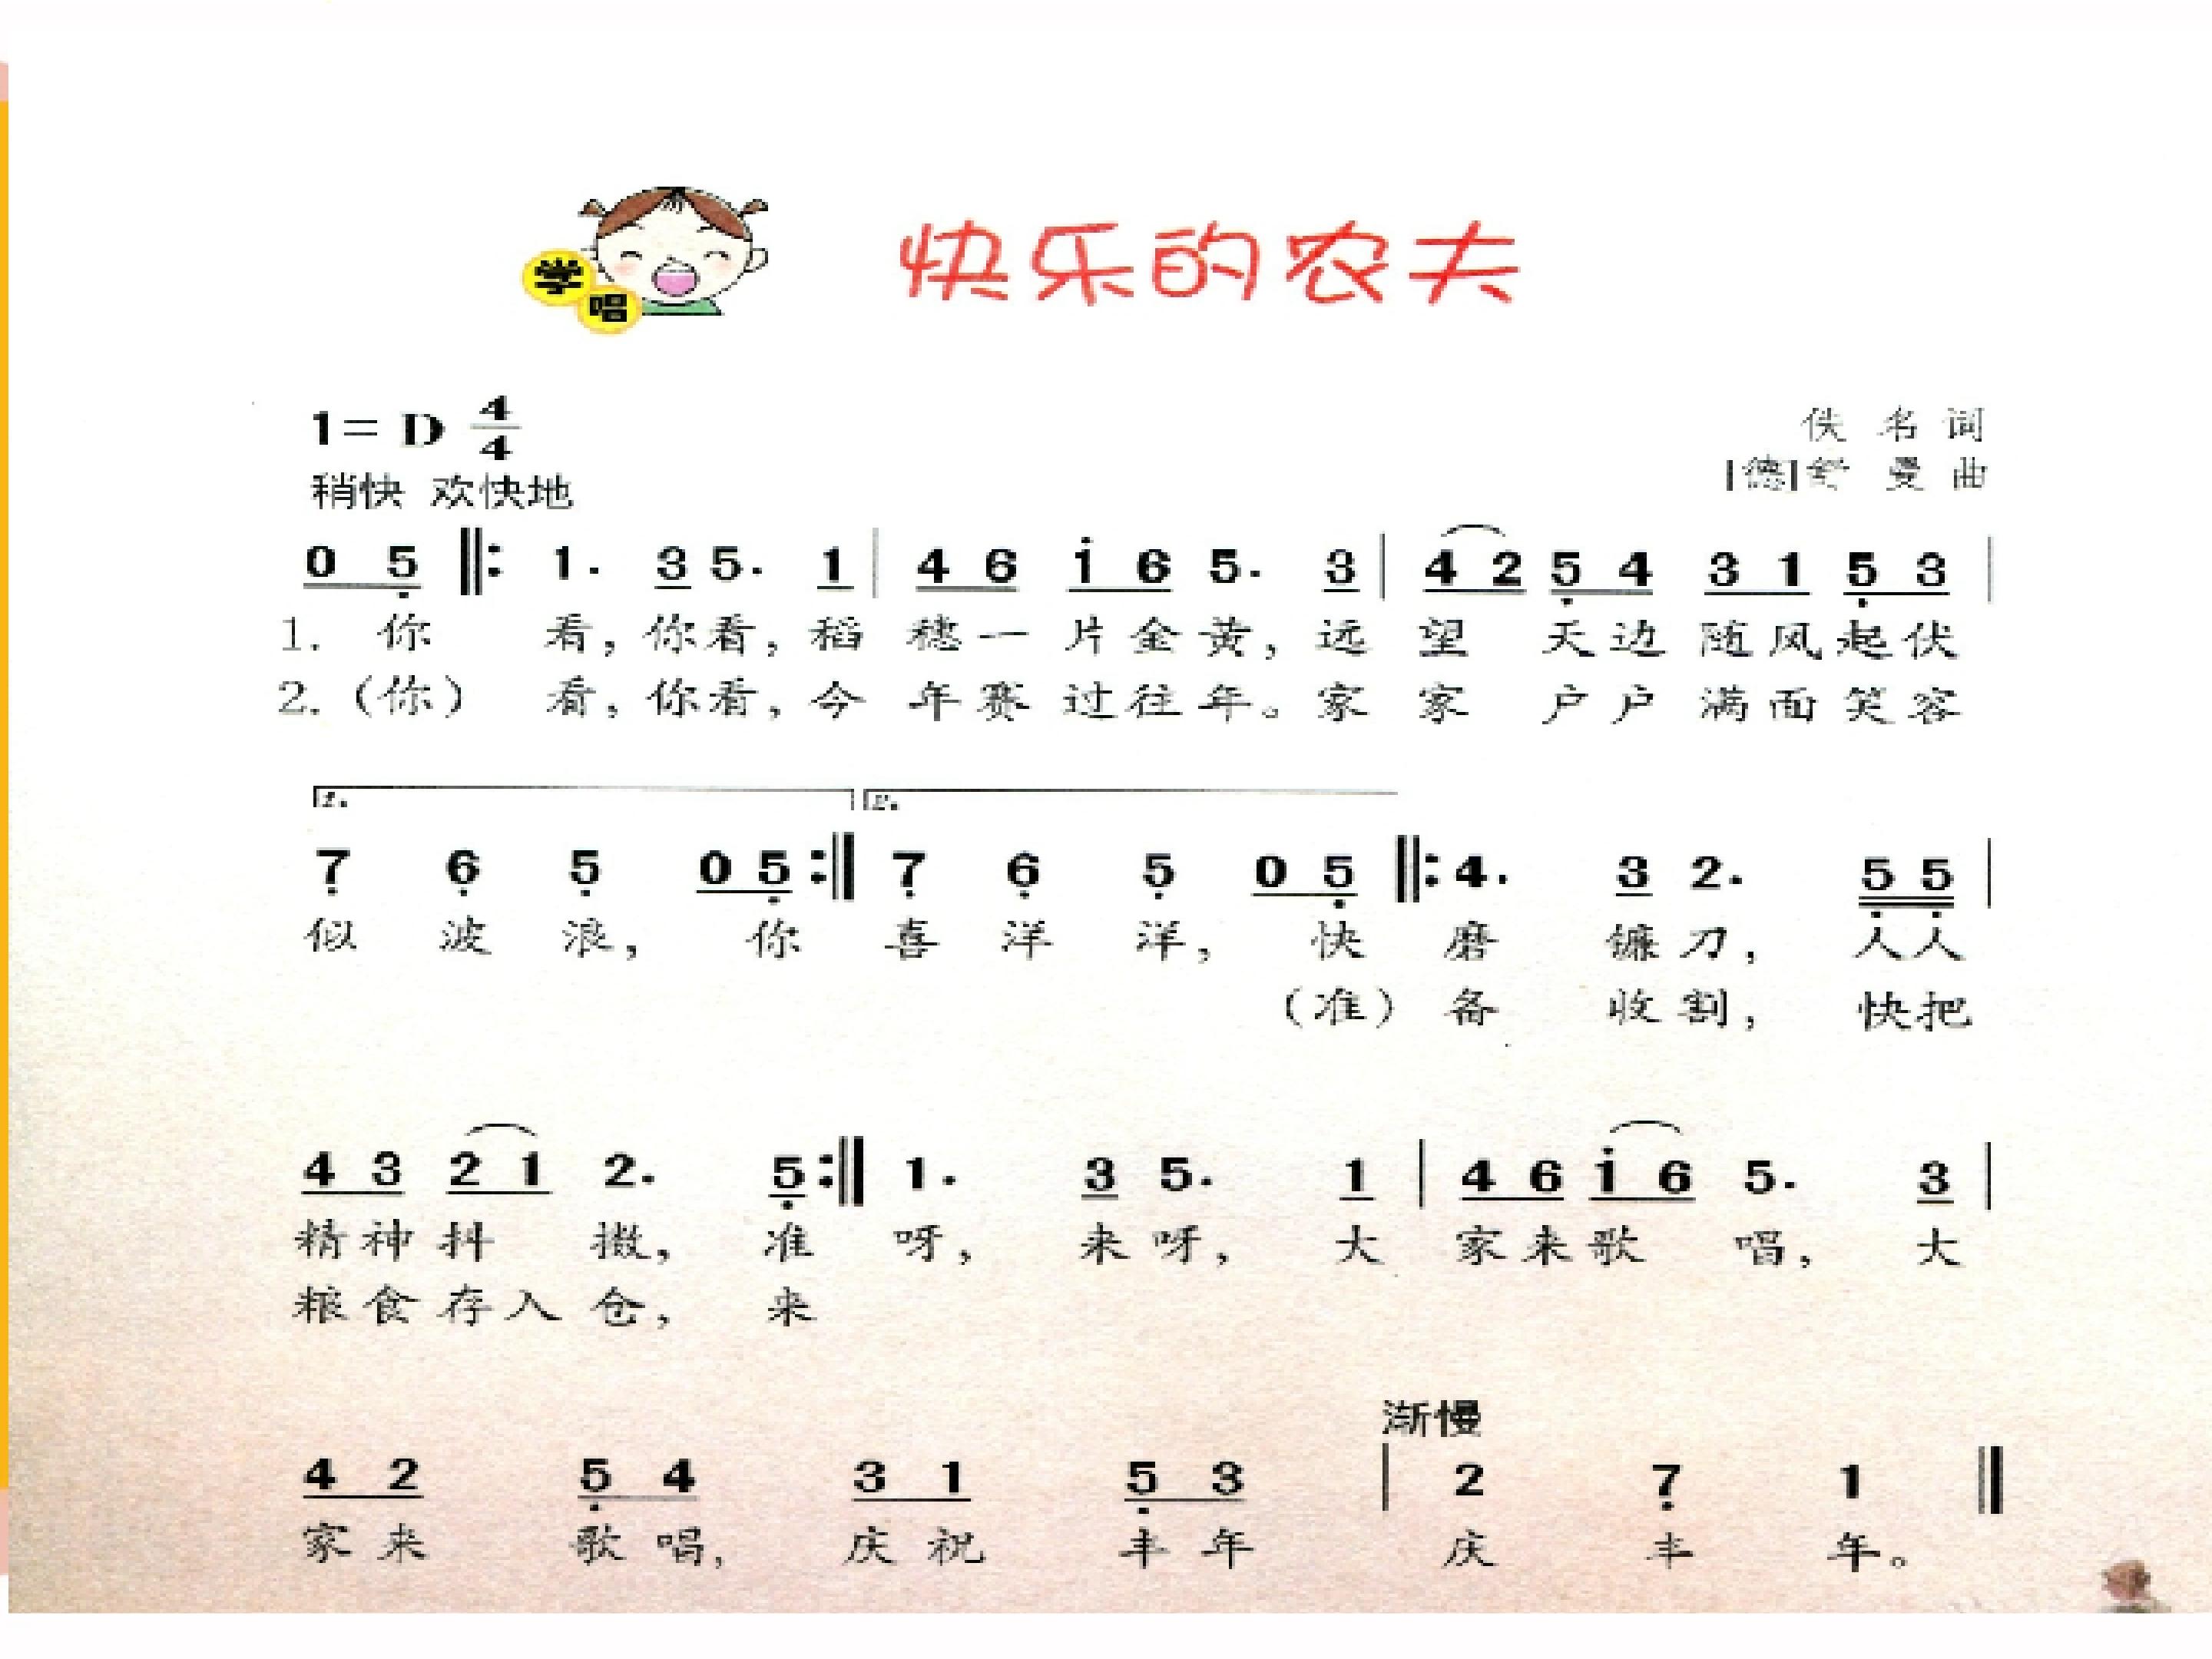 学唱
快乐的农夫
1= D 4/4
佚 名 词
稍快 欢快地
[德]舒 曼 曲
0 5 ‖: 1. 3 5. 1 | 4 6 i 6 5. 3 | 4 2 5 4 3 1 5 3 |
1. 你 看, 你看, 稻 穗一 片金黄, 远 望 天边 随风起伏
2. (你) 看, 你看, 今 年赛 过往年。家 家 户户 满面笑容
1. 2.
7 6 5 0 5 :‖ 7 6 5 0 5 ‖: 4. 3 2. 5 5 |
似 波 浪, 你 喜 洋 洋, 快 磨 镰刀, 人人
(准) 备 收割, 快把
4 3 2 1 2. 5 :‖ 1. 3 5. 1 | 4 6 i 6 5. 3 |
精神抖 擞, 准 呀, 来呀, 大 家来歌 唱, 大
粮食存入仓, 来
渐慢
4 2 5 4 3 1 5 3 | 2 7 1 ‖
家来 歌唱, 庆祝 丰年 庆 丰 年。